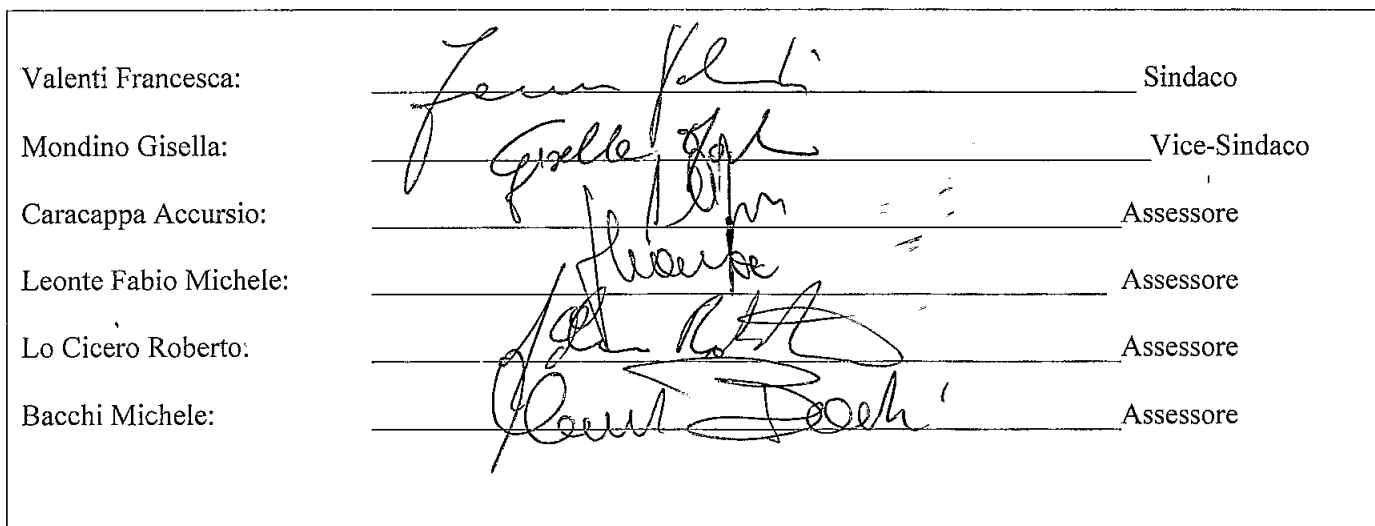 Valenti Francesca: Sindaco
Mondino Gisella: Gisella Vice-Sindaco
Caracappa Accursio: Assessore
Leonte Fabio Michele: Assessore
Lo Cicero Roberto: Assessore
Bacchi Michele: Bacchi Assessore